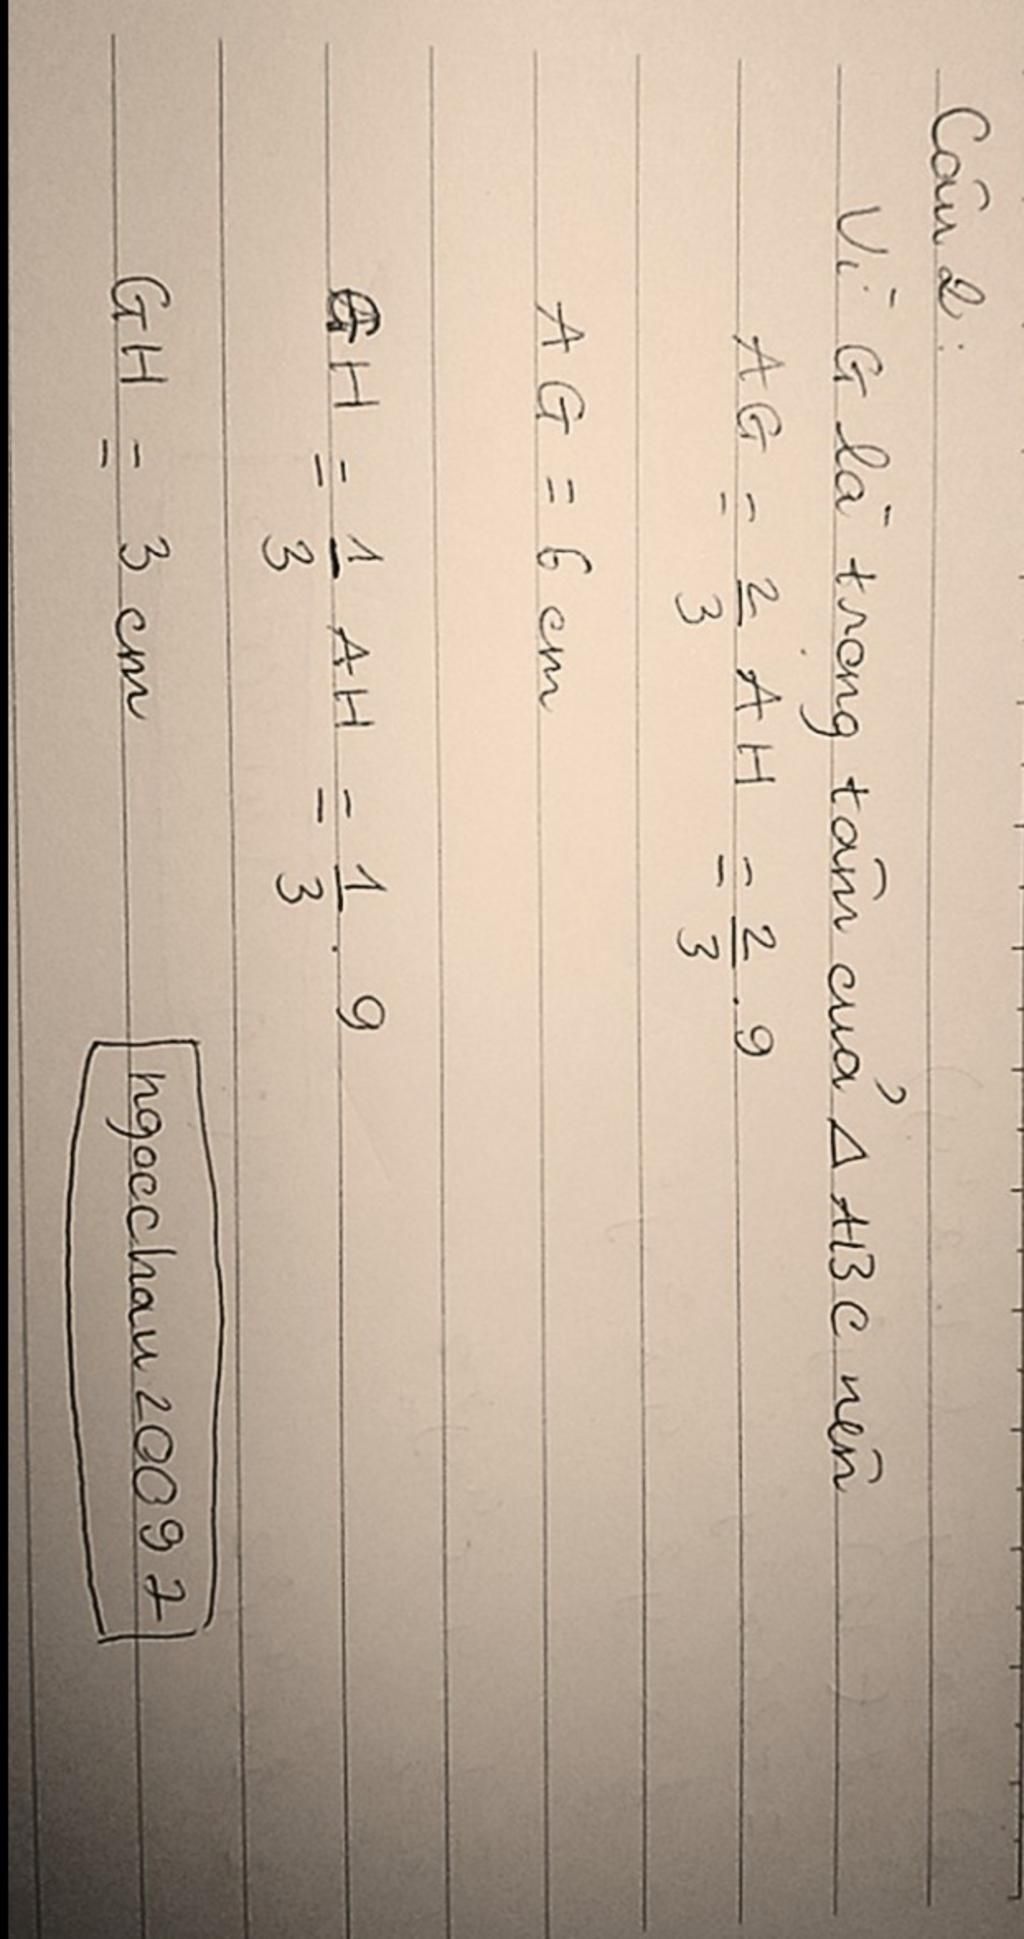 Câu 2:
Vì G là trọng tâm của Δ ABC nên
AG = 2/3 AH = 2/3 . 9
AG = 6 cm
GH = 1/3 AH = 1/3 . 9
GH = 3 cm
ngocchau20097